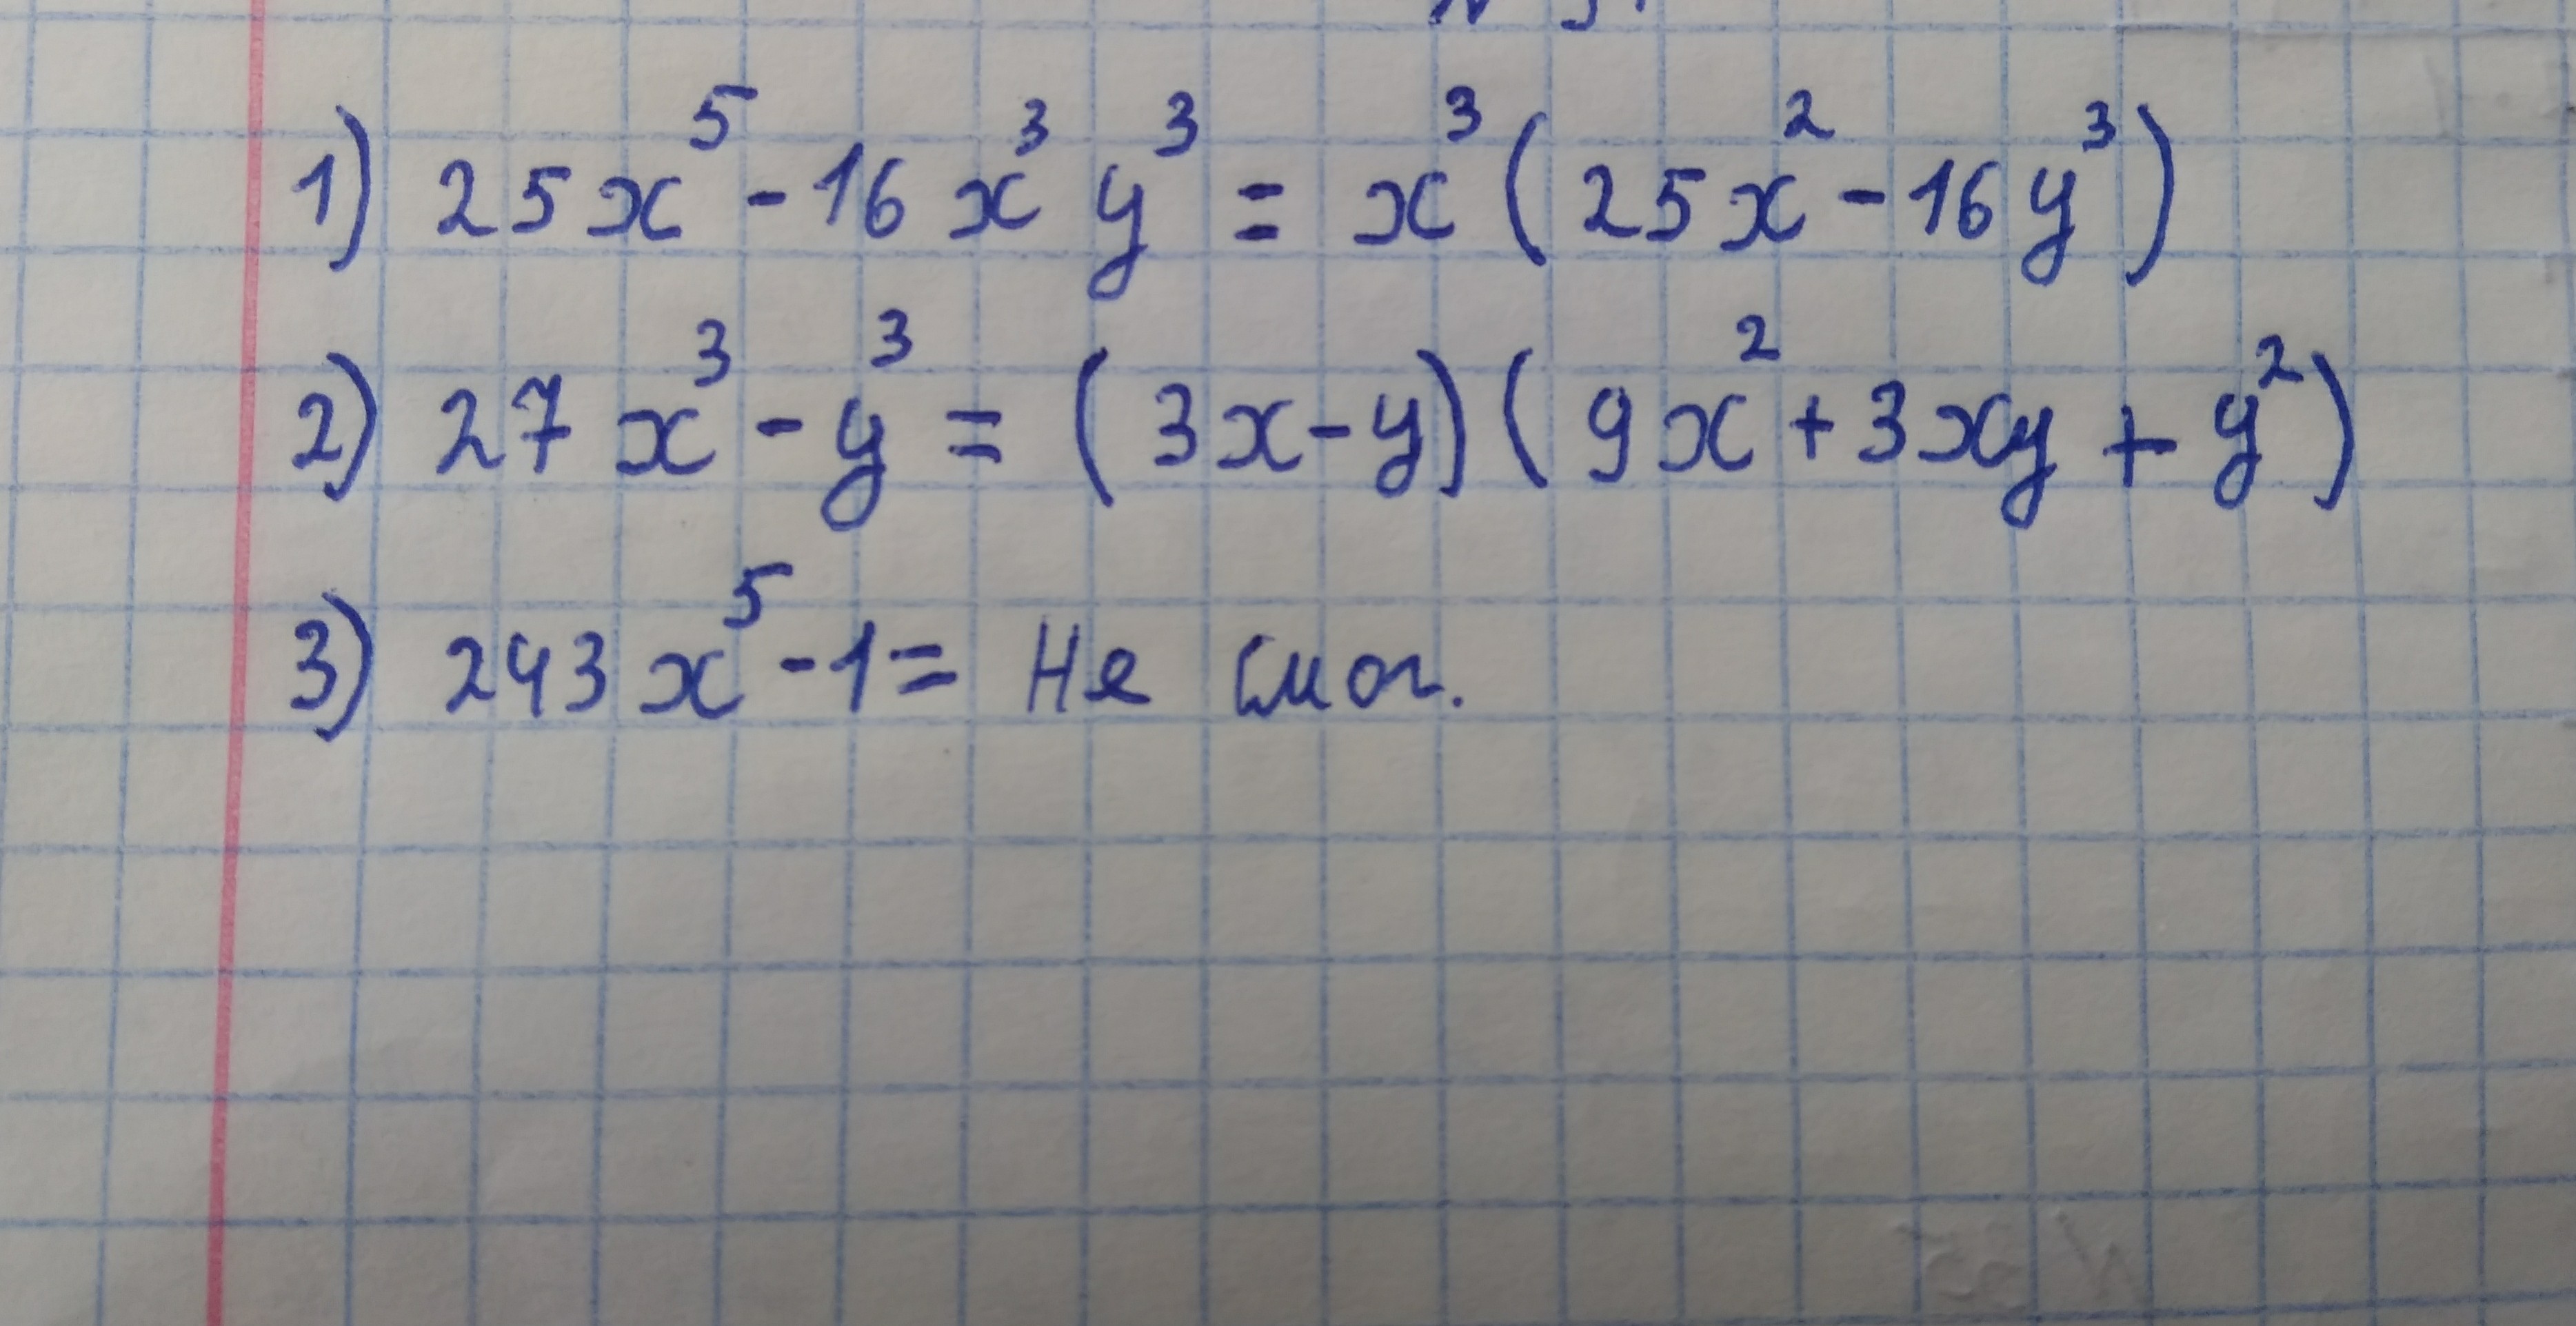 1) 25x⁵ - 16x³y³ = x³(25x² - 16y³)
2) 27x³ - y³ = (3x - y)(9x² + 3xy + y²)
3) 243x⁵ - 1 = Не смог.